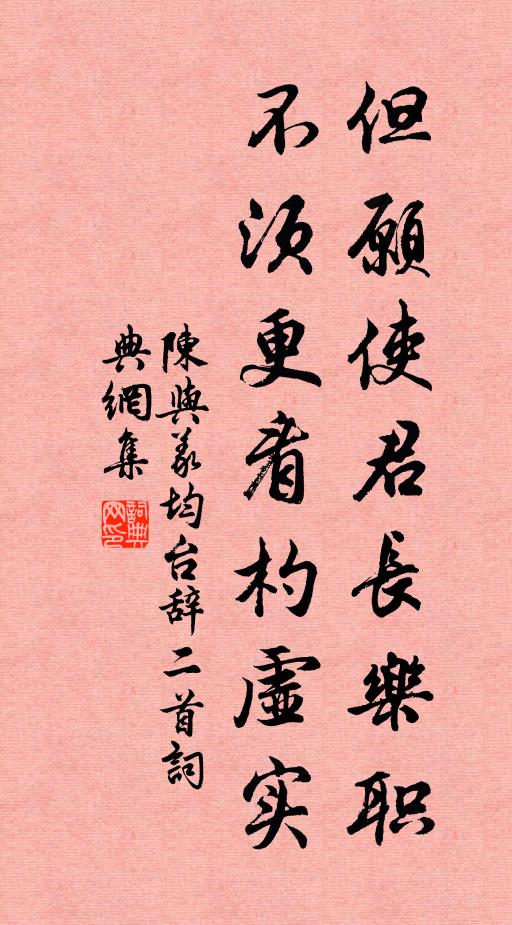 但願使君長樂职
不须更看杓虛实
陳與义均台辞二首詞
典網集
詞典网印